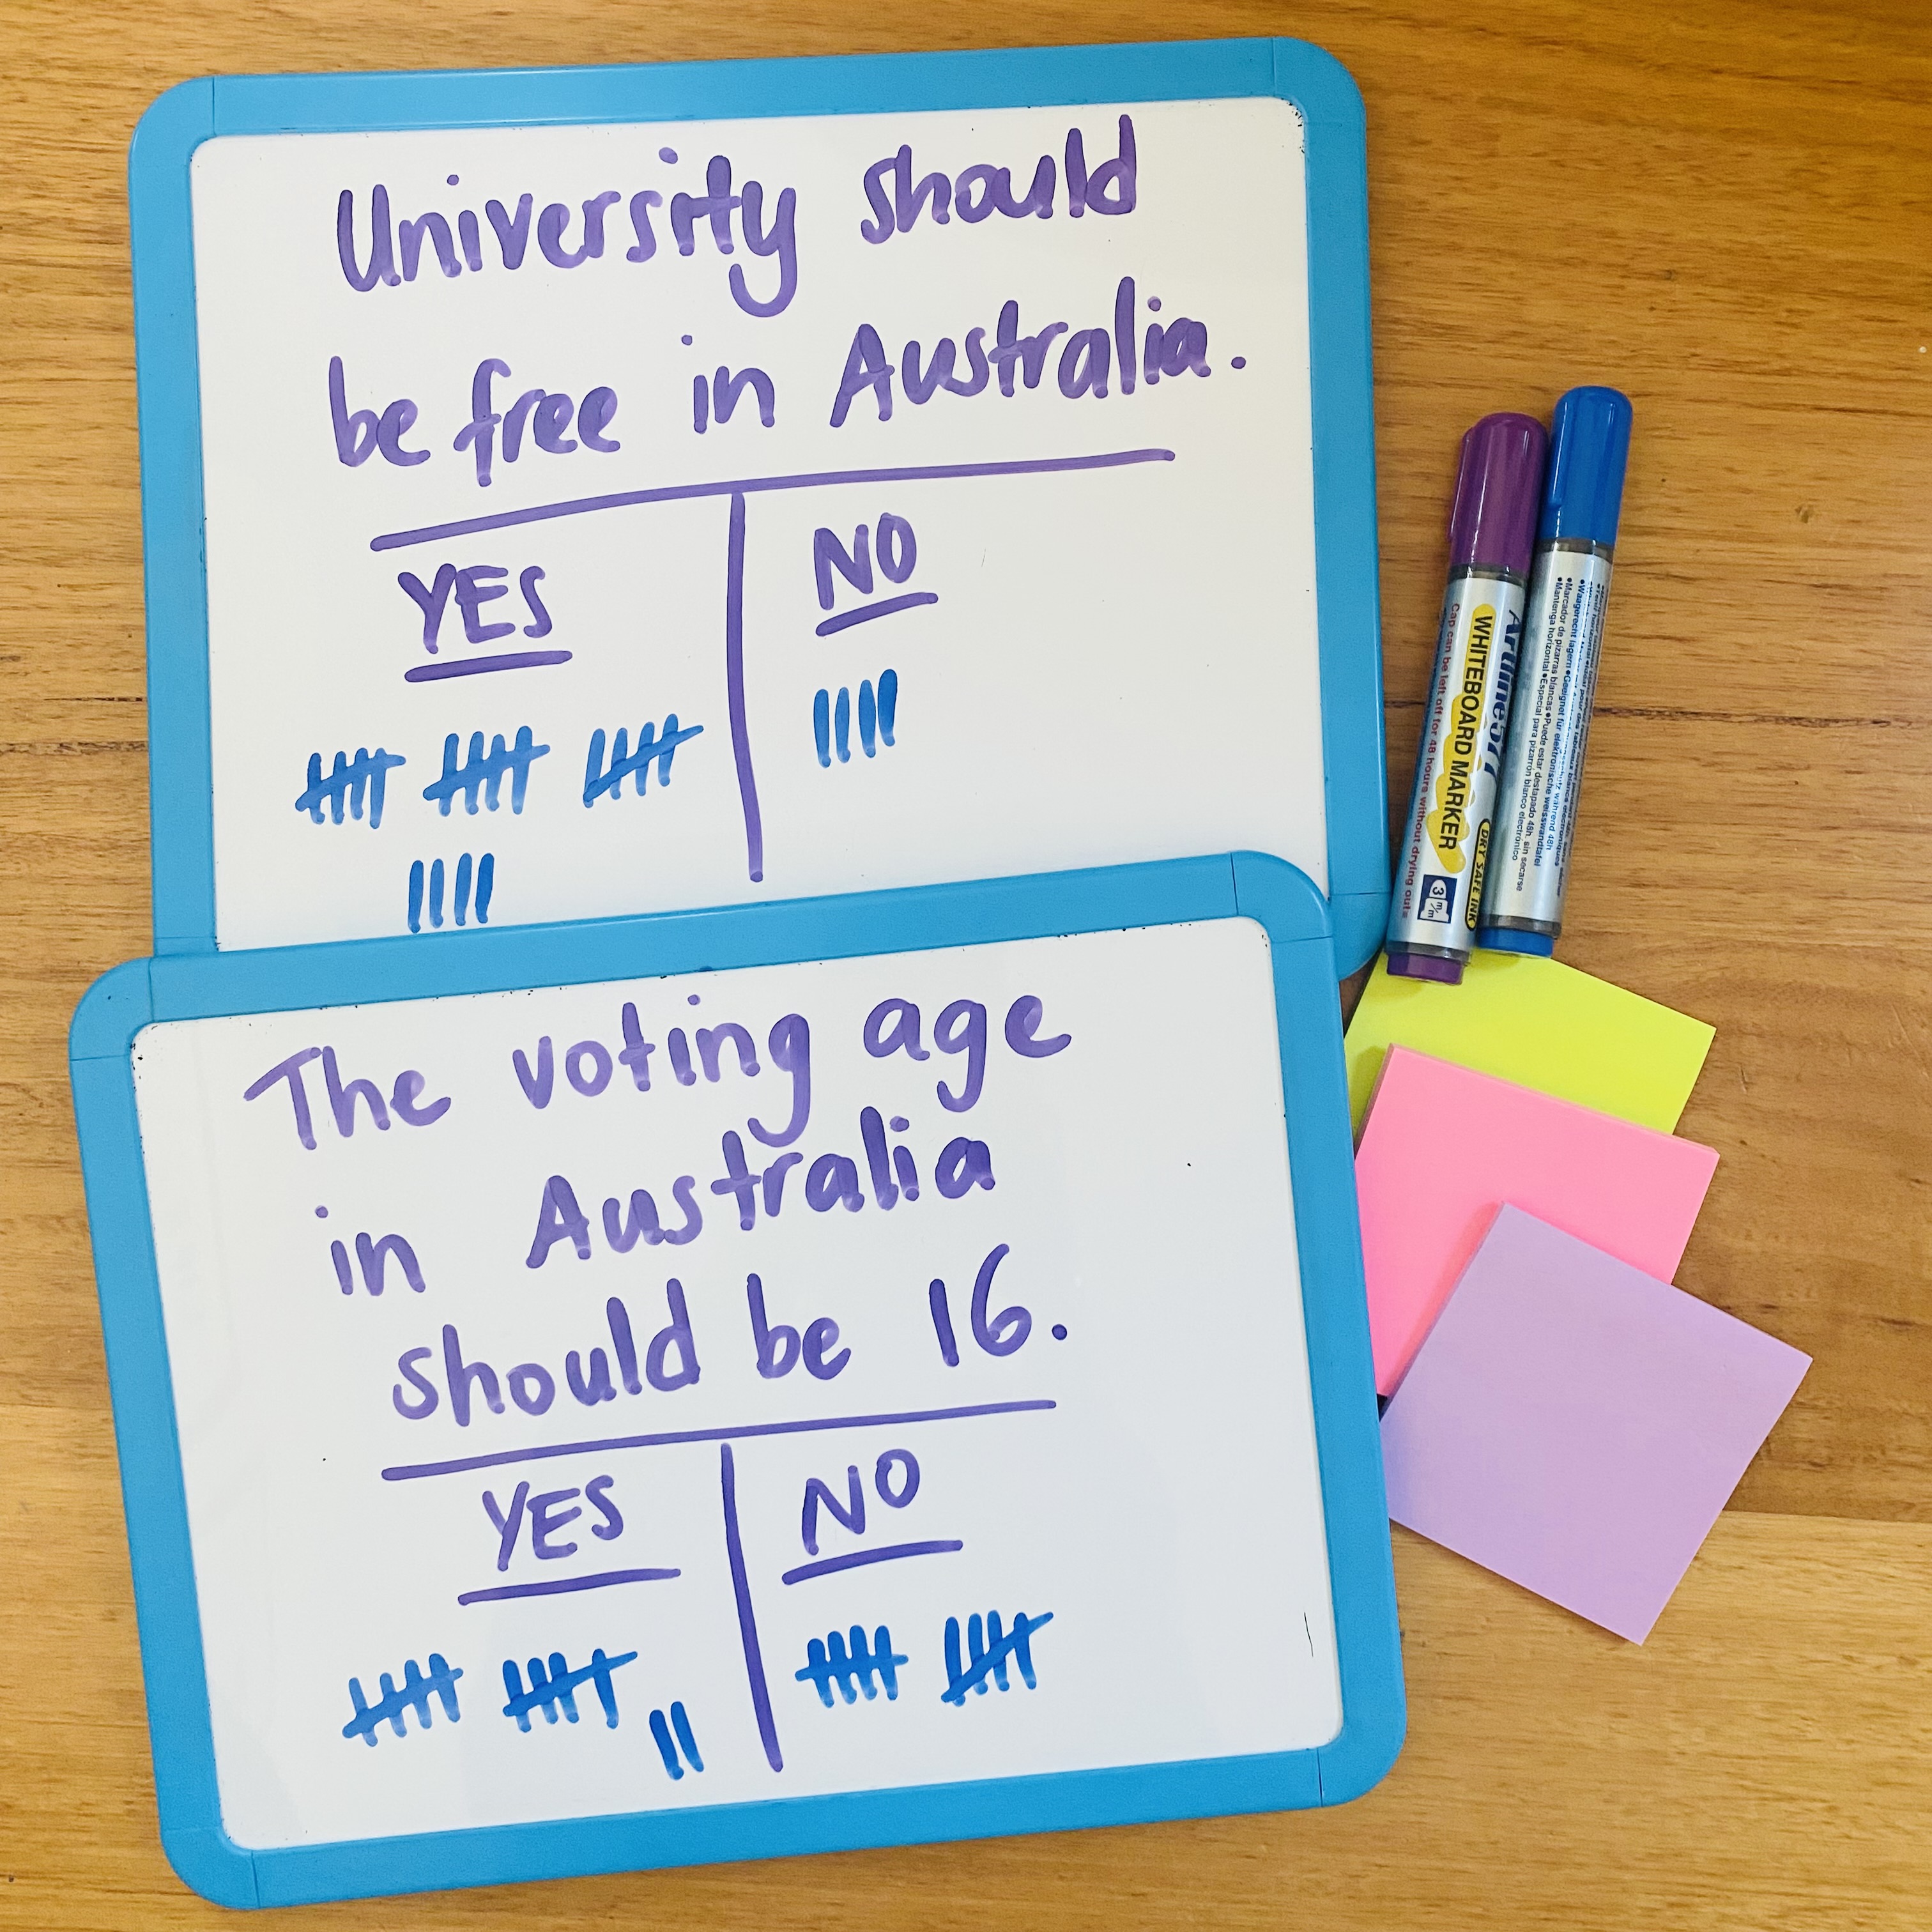 University should
be free in Australia.
YES NO
The voting age
in Australia
should be 16.
YES NO
WHITEBOARD MARKER
DRY SAFE INK
3 m/m
Cap can be left off for 48 hours without drying out